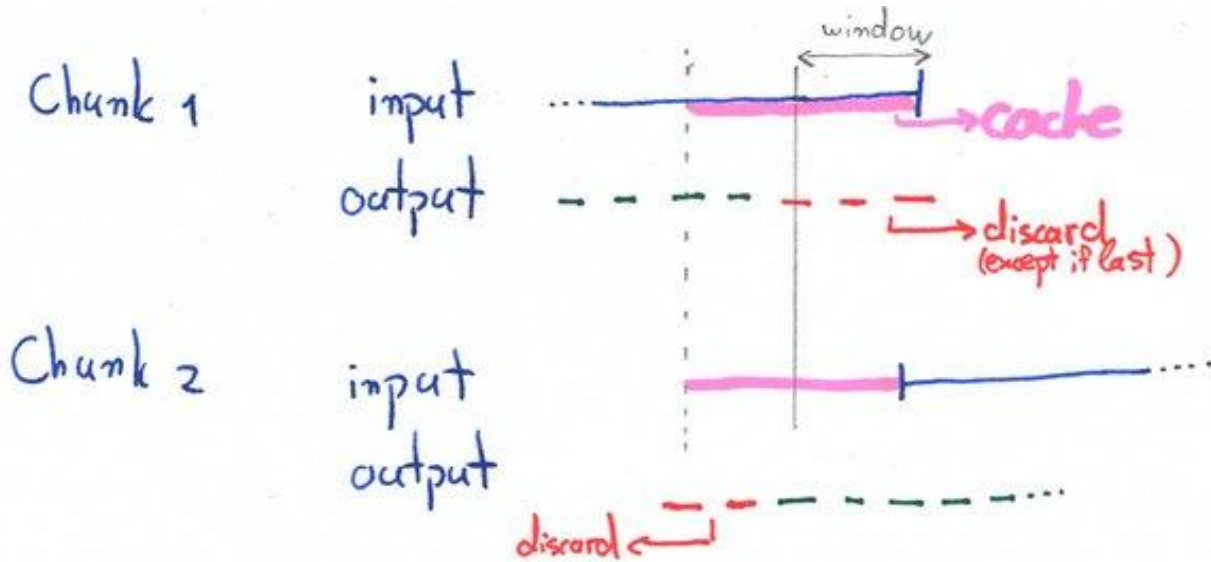 window
Chunk 1
input
cache
output
discard
(except if last)
Chunk 2
input
output
discard